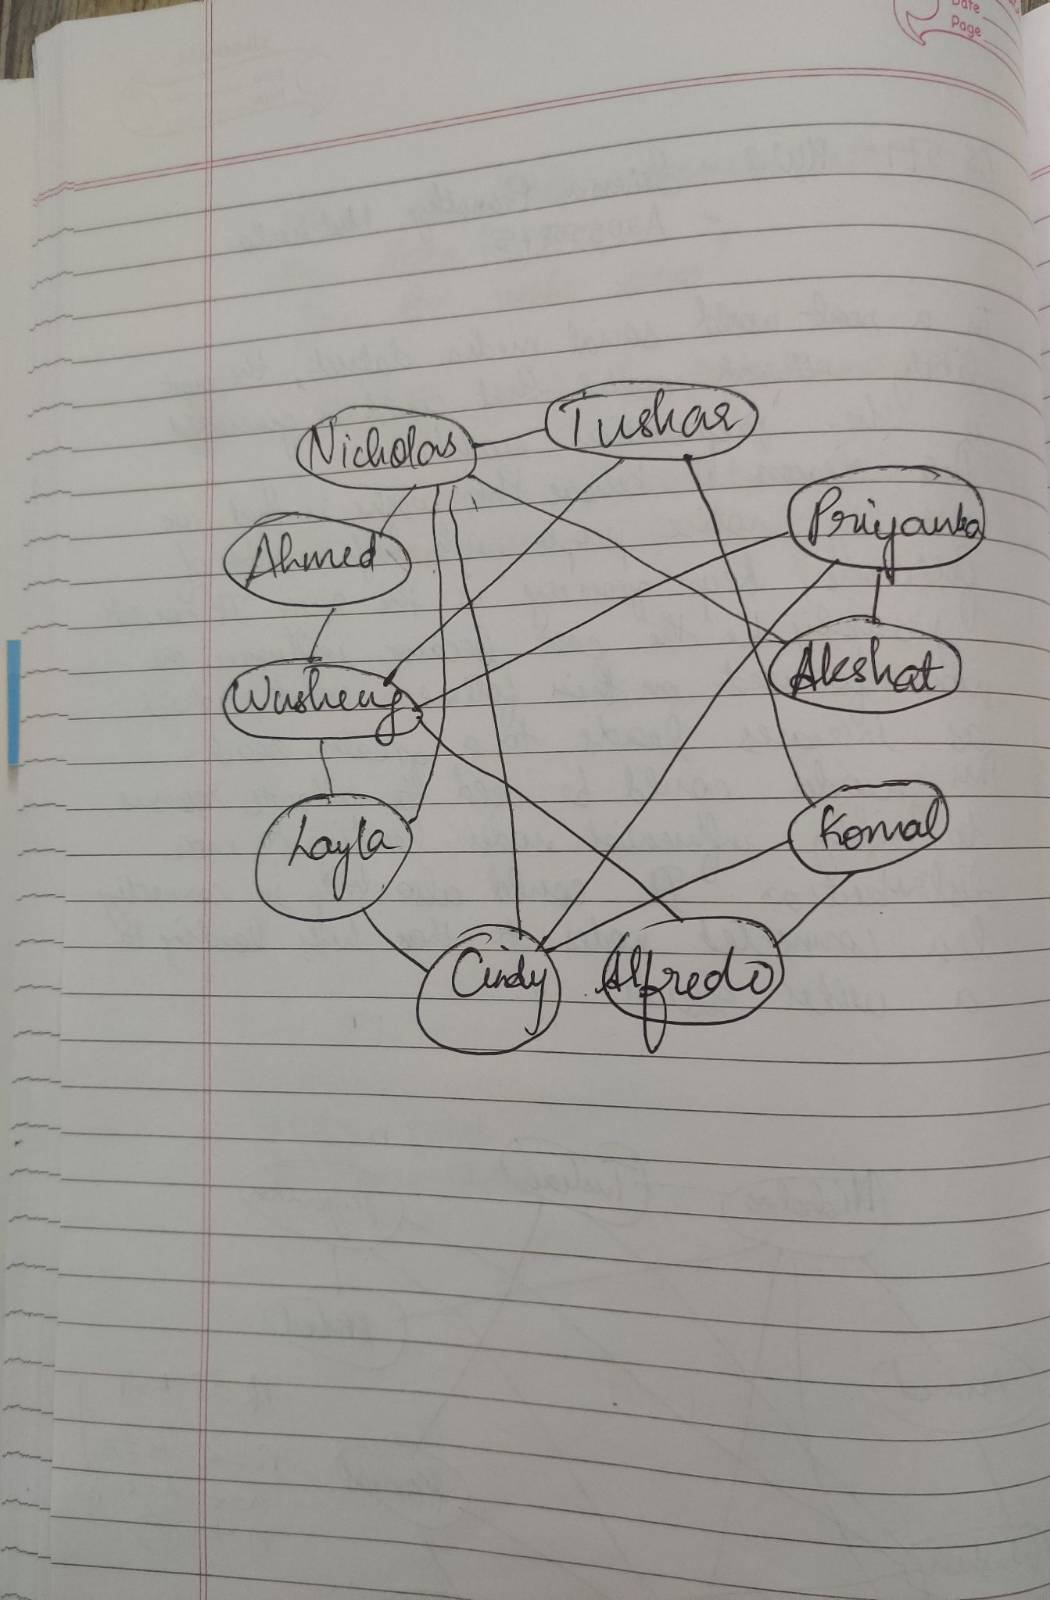 Date
Page
Nicholas
Tushar
Priyanka
Ahmed
Akshat
Wusheng
Layla
Komal
Cindy
Alfredo